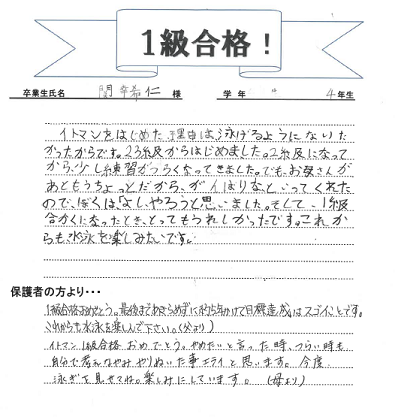 1級合格！
卒業生氏名 関 幸希仁 様 学年 4年生
イトマンをはじめた理由は泳げるようになりた
かったからです。23級からはじめました。2級になって
から少し練習がつらくなってきました。でも、お母さんが
あともうちょっとだから、がんばりなといってくれた
ので、ぼくは、よし、やろうと思いました。そして、1級
合かくになったとき、とってもうれしかったです。これか
らも水泳を楽しみたいです。
保護者の方より・・・
1級合格おめでとう。最後まであきらめずに約5年かけて目標達成はスゴイことです。
これからも水泳を楽しんで下さい。(父より)
イトマン1級合格おめでとう。やめたいと言った時、つらい時も
自分で考えなやみやりぬいた事エライと思います。今度
泳ぎを見せてね。楽しみにしています。(母より)